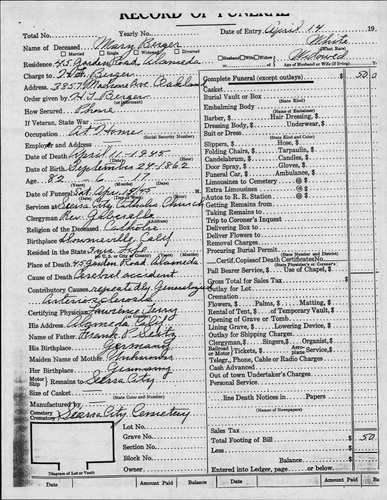 RECORD OF FUNERAL
Total No. Yearly No. Date of Entry April 14 19
Name of Deceased Mary Berger White
Married Single Widowed Divorced (What Race)
Residence 45 Garden Road, Alameda Husband Wife Widow Widowed
Charge to H. Berger of
Address 3857 Ave Oakland Complete Funeral (except outlays) $ 50 0
Order given by H J Berger Casket
or Phone Burial Vault or Box
If Veteran, State War Embalming Body
Occupation At Home Barber, $ Hair Dressing, $
Employer and Address Dressing Body, $ Underwear, $
Date of Death April 11-1945 Suit or Dress
Date of Birth September 24-1862 Slippers, $ Hose, $
Age 82 17 Folding Chairs, $ Tarpaulin, $
Date of Funeral Sat. Apr 14-45 Candelabrum, $ Candles, $
Services at Sierra City Catholic Church Door Spray, $ Gloves, $
Clergyman Rev. Funeral Car, $ Ambulance, $
Religion of the Deceased Catholic Limousines to Cemetery @ $
Birthplace Calif Extra Limousines @ $
Resided in the State Autos to R. R. Station @ $
Place of Death 45 Garden Road Alameda Getting Remains From
Cause of Death Cerebral accident Taking Remains to
Contributory Causes Trip to Coroner's Inquest
Arteriosclerosis Delivering Box to
Certifying Physician Deliver Flowers to
His Address Alameda Calif Removal Charges
Name of Father Frank Procuring Burial Permit
His Birthplace Germany Certif. Copies of Death Certificates No.
Maiden Name of Mother Unknown Pall Bearer Service Use of Chapel, $
Her Birthplace Germany Gross Total for Sales Tax $
Remains to Sierra City Outlay for Vault
Size of Casket Cremation
Manufactured by Flowers, $ Palms, $ Matting, $
Cemetery Crematory Sierra City Cemetery Rental of Tent, $ of Temporary Vault, $
Lot No. Opening of Grave or Tomb
Grave No. Lining Grave, $ Lowering Device, $
Section No. Outlay for Shipping Charges
Block No. Clergyman, $ Singers, $ Organist, $
Owner Railroad or Motor Tickets, $ Aeroplane Service, $
Diagram of Lot or Vault Telegr., Phone, Cable or Radio Charges
Cash Advanced
Out of town Undertaker's Charges
Personal Service
line Death Notices in Papers
(Names of Newspapers)
Sales Tax
Total Footing of Bill $ 50
Less
Balance
Entered into Ledger, page or below.
Date Amount Paid Balance Date Amount Paid Balance